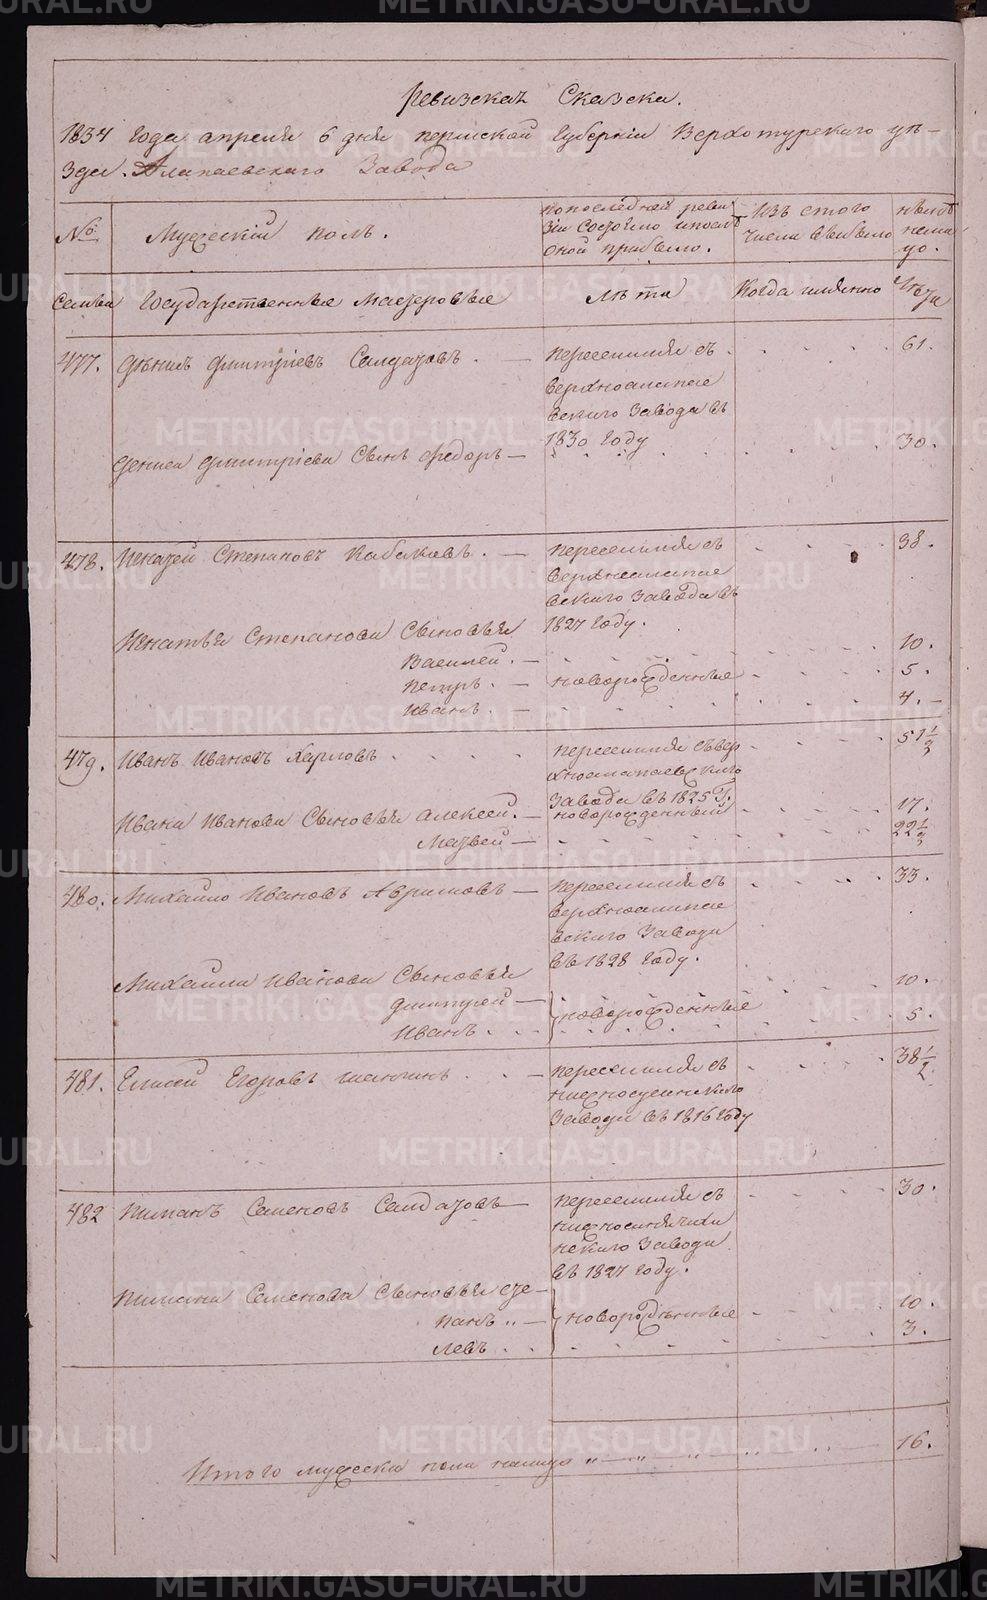 Ревизская Сказска.
1834 Года апреля 6 дня пермской Губернiи Верхотурскаго уѣ-
зда. Алапаевскаго Завода
№
Мужескiй полъ.
попоследней реви
зiи состояло ипосле
оной прибыло.
Изъ етого
числа выбыло
нѣлицо
Семьи
Государственные мастеровые
Лѣта
Когда имянно
Лѣта
477. Денисъ Дмитрiевъ Салдатовъ. — переселился съ 61.
верхноалапае
вскаго Завода въ
1830 году
Дениса Дмитрiева сынъ Федоръ — 30.
478. Игнатей Степановъ Кабаковъ. — переселился съ 38.
верхнеалапае
вскаго Завода въ
1827 году.
Игнатья Степанова Сыновья
Василей. — 10.
Петръ. — новорожденные 5.
Иванъ. — 4. —
479. Иванъ Ивановъ Харловъ переселился съвер 51½
хноалапаевскаго
Завода въ 1825 Г.
Ивана Иванова Сыновья Алексей. — новорожденный 17.
Матвей — 22½
480. Михайло Ивановъ Абрамовъ — переселился съ 33.
верхноалапае
вскаго Завода
въ 1828 году.
Михайла Иванова Сыновья 10.
Дмитрей — новорожденные
Иванъ. 5.
481. Елисей Егоровъ — переселился съ 38½
нижносусанскаго
Завода въ 1816 году
482 Пиманъ Семеновъ Салдатовъ — переселился съ 30.
нижносинячихи
нскаго Завода
въ 1827 году.
Пимана Семенова Сыновья Сте-
панъ „ — новорожденные 10.
Левъ. 3.
Итого мужеска пола налицо „ — „ 16.
METRIKI.GASO-URAL.RU